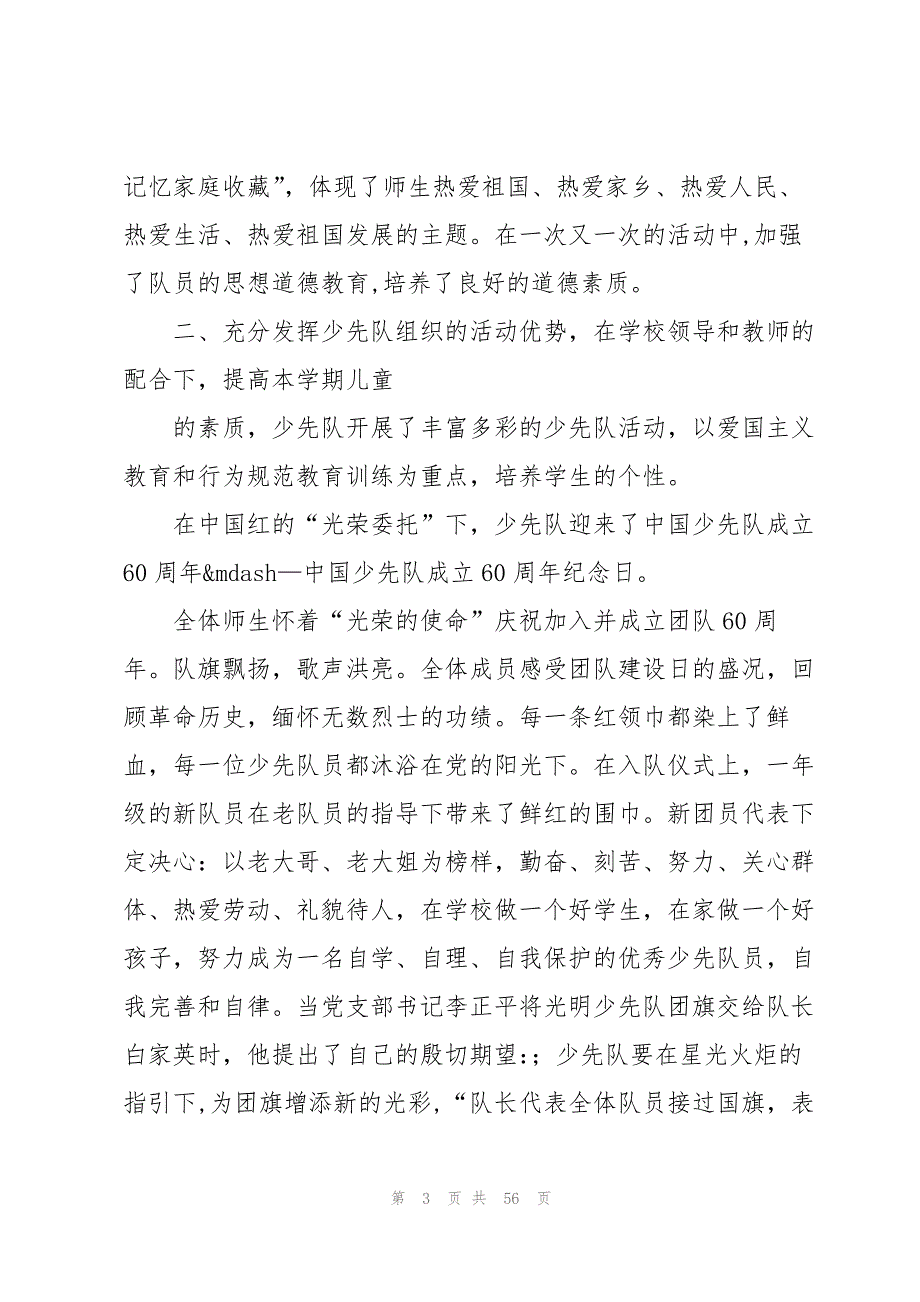 记忆家庭收藏”，体现了师生热爱祖国、热爱家乡、热爱人民、
热爱生活、热爱祖国发展的主题。在一次又一次的活动中,加强
了队员的思想道德教育,培养了良好的道德素质。
二、充分发挥少先队组织的活动优势，在学校领导和教师的
配合下，提高本学期儿童
的素质，少先队开展了丰富多彩的少先队活动，以爱国主义
教育和行为规范教育训练为重点，培养学生的个性。
在中国红的“光荣委托”下，少先队迎来了中国少先队成立
60 周年&mdash—中国少先队成立 60 周年纪念日。
全体师生怀着“光荣的使命”庆祝加入并成立团队 60 周
年。队旗飘扬，歌声洪亮。全体成员感受团队建设日的盛况，回
顾革命历史，缅怀无数烈士的功绩。每一条红领巾都染上了鲜
血，每一位少先队员都沐浴在党的阳光下。在入队仪式上，一年
级的新队员在老队员的指导下带来了鲜红的围巾。新团员代表下
定决心：以老大哥、老大姐为榜样，勤奋、刻苦、努力、关心群
体、热爱劳动、礼貌待人，在学校做一个好学生，在家做一个好
孩子，努力成为一名自学、自理、自我保护的优秀少先队员，自
我完善和自律。当党支部书记李正平将光明少先队团旗交给队长
白家英时，他提出了自己的殷切期望:；少先队要在星光火炬的
指引下,为团旗增添新的光彩,“队长代表全体队员接过国旗，表
第 3 页 共 56 页